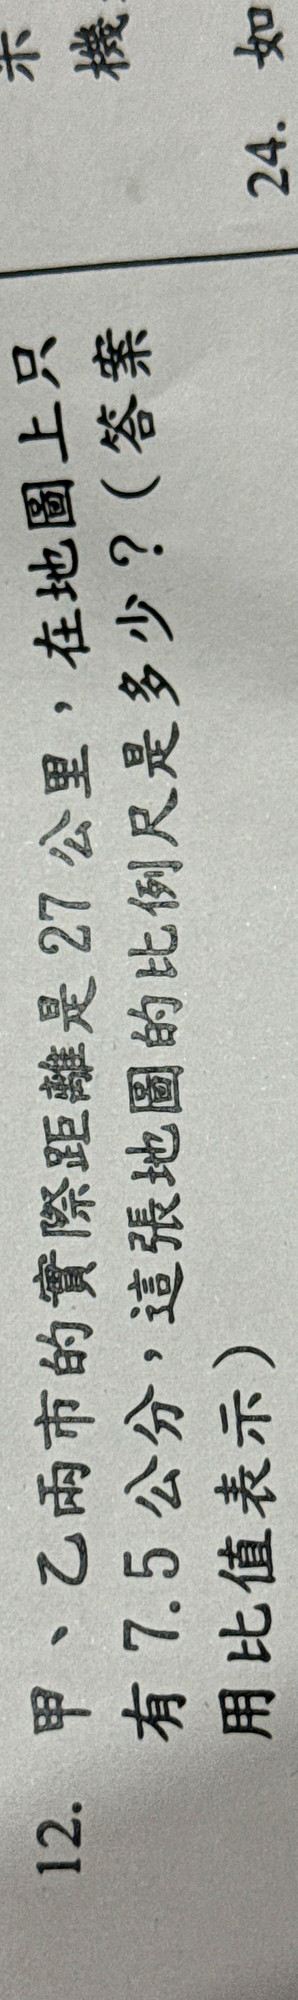 12. 甲、乙兩市的實際距離是27公里，在地圖上只
有7.5公分，這張地圖的比例尺是多少？（答案
用比值表示）
24. 如
機